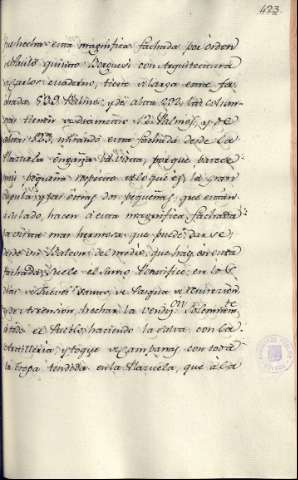 423.
fue hecha esta magnifica fachada por orden
Paulo quinto Borguesi con Arquitectura
Carlos Maderno, tiene de larga esta fa-
chada 533 Palmos, y de alta 232. las colum-
nas tienen de diametro 12. Palmos, y de
altas 123. mirando esta fachada desde la
Plazuela engaña la vista, porque parece
mui pequeña respecto de lo que es, la gran
Cupula, y las otras dos pequeñas, que estan
a su lado, hacen a esta magnifica fachada
la vista mas hermosa que puede darse,
desde un Balcon del medio, que hay en esta
fachada, suele el Sumo Pontifice, en los
dias de Jueves Santo, de Pasqua de resureccion
y de Ascension, hechar la vendicion Solemnemte
a todo el Pueblo, haciendo la salva con la
Artilleria, y toque de Campanas, con toda
la tropa tendida en la Plazuela, que a la